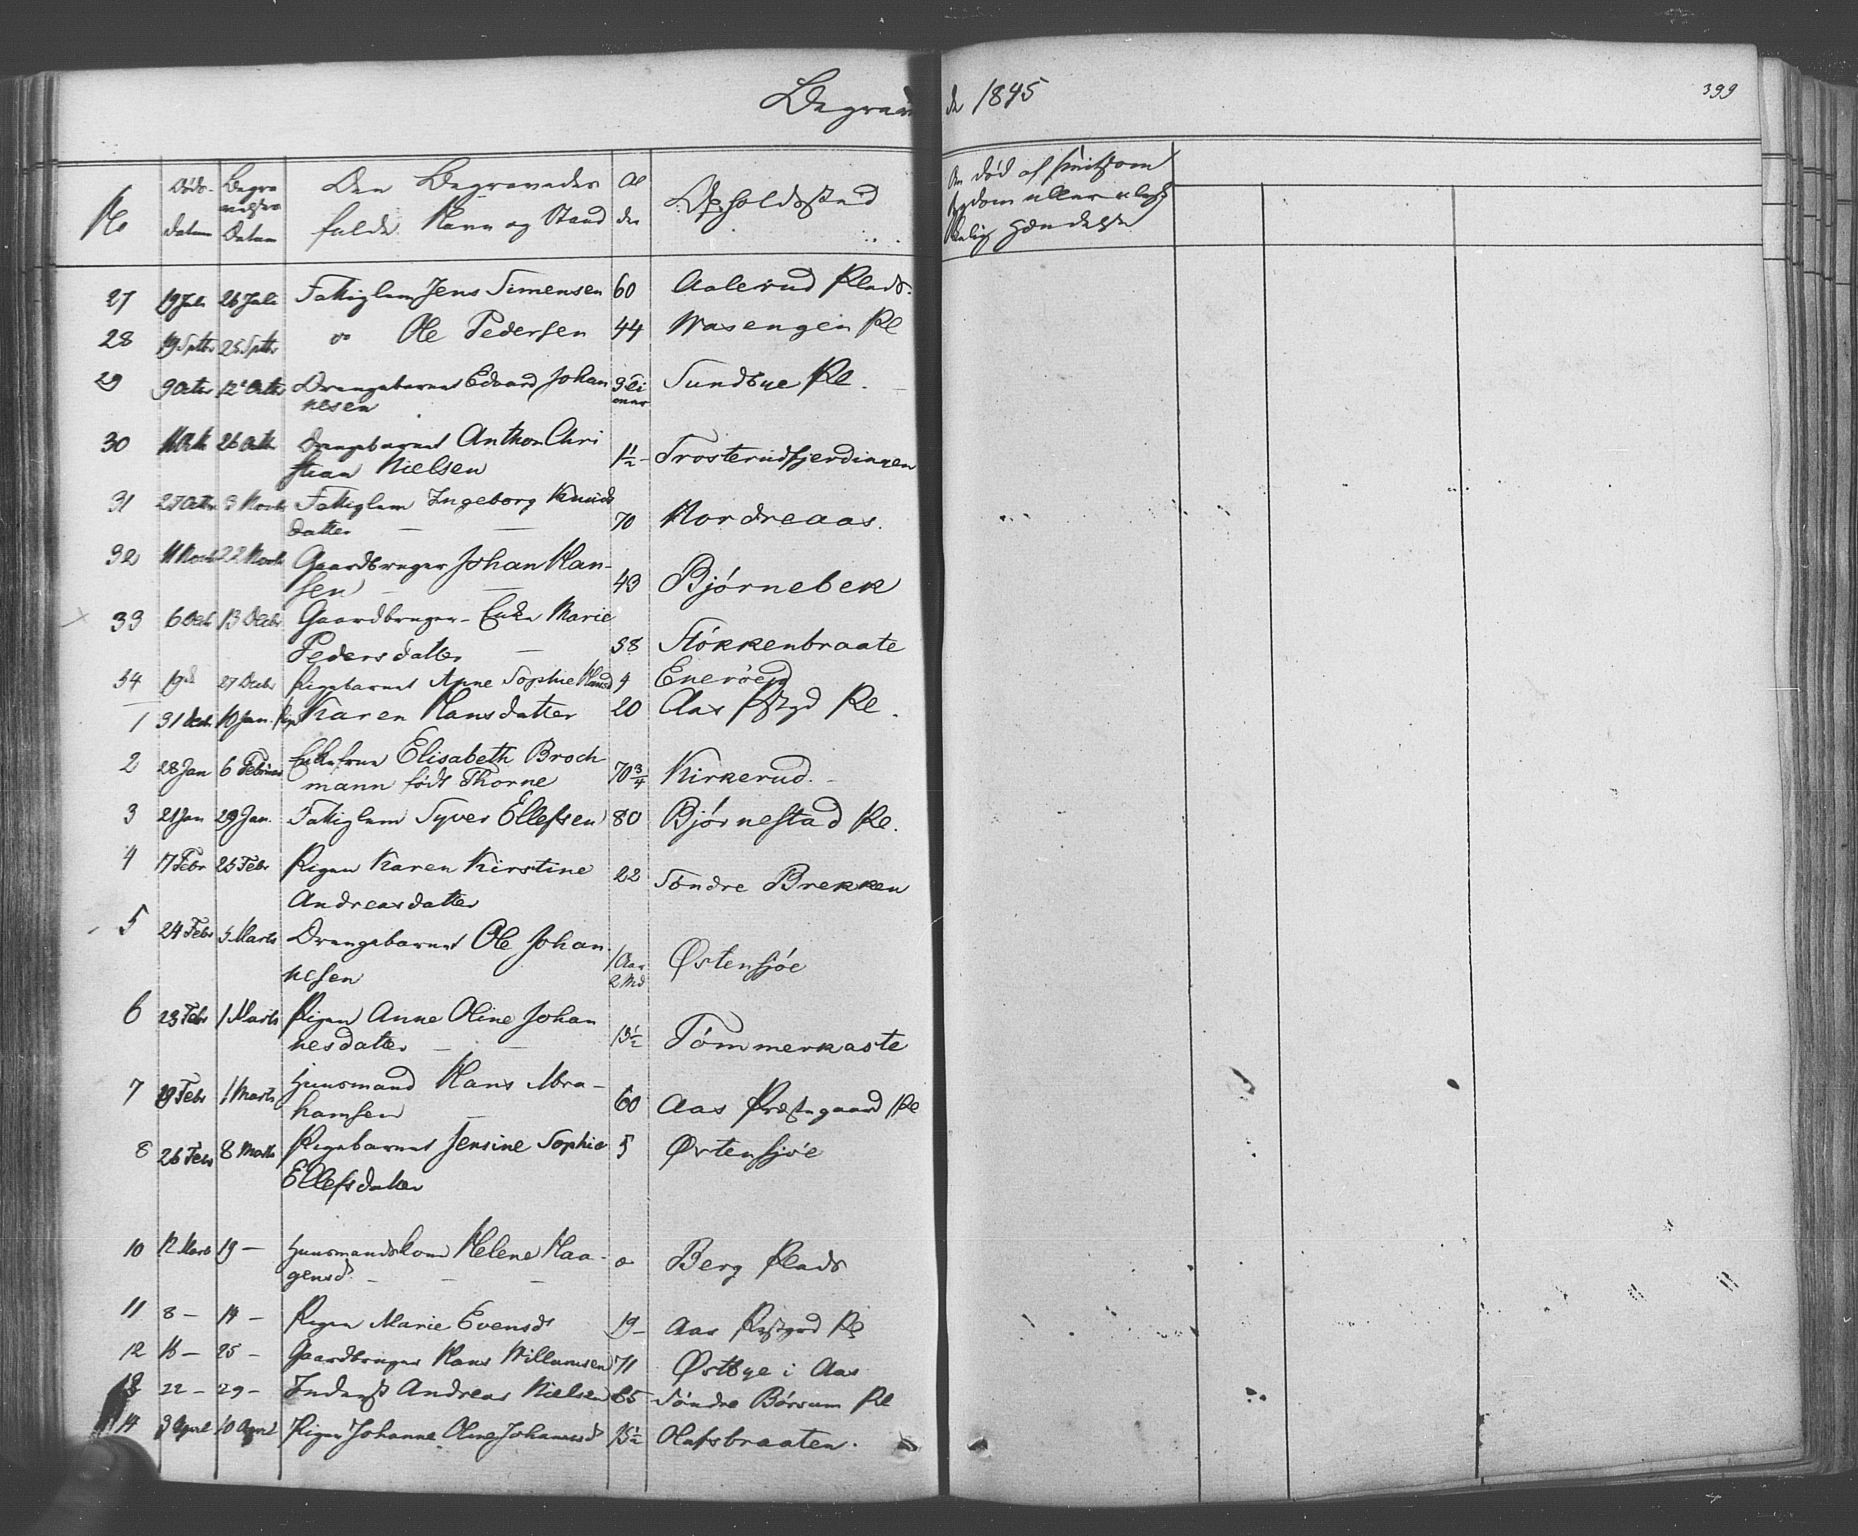 Begravede 1845
399
No
Døds-
datum
Begra
velses
Datum
Den Begravedes
fulde Navn og Stand
Al
der
Opholdssted
Om død af smitsom
Sygdom eller ulyk
kelig Hændelse
27 19 Juli 26 Juli Fattiglem Jens Simensen 60 Aalerud Plads.
28 19 Septbr 25 Septbr do Ole Pedersen 44 Wasengen Pl
29 9 Octbr 12 Octbr Drengebarnet Edvard Johan
nesen
Sundbye Pl.
30 11 Octbr 26 Octbr Drengebarnet Anthon Chri
stian Nielsen 1½ Frosterudfjerdingen
31 27 Octbr 3 Novbr Fattiglem Ingeborg Knuds
datter 70 Nordreaas.
32 11 Novbr 22 Novbr Gaardbruger Johan Han-
sen 43 Bjørnebek
33 6 Decbr 13 Decbr Gaardbruger-Enke Marie
Pedersdatter 58 Støkkenbraate
34 27 Decbr Pigebarnet Anne Sophie Hansd 4 Enerøejd
1 31 Decbr 10 Jan. Pige Karen Hansdatter 20 Aas Pstgd Pl.
2 28 Jan 6 Februar Enkefrue Elisabeth Broch
mann født Thorne 70¾ Kirkerud.
3 21 Jan 29 Jan. Fattiglem Syver Ellefsen 80 Bjørnestad Pl.
4 17 Febr 25 Febr Pigen Karen Kirstine
Andreasdatter 22 Søndre Brekken
5 24 Febr 5 Marts Drengebarnet Ole Johan
nesen 1 Aar
2 Md Østensjøe
6 23 Febr 1 Marts Pigen Anne Oline Johan
nesdatter 13½ Tømmerkaste
7 19 Febr 1 Marts Huusmand Hans Abra-
hamsen 60 Aas Præstegaard Pl
8 26 Febr 8 Marts Pigebarnet Jensine Sophie
Ellefsdatter 5 Østensjøe
10 12 Marts 19 — Huusmandskone Helene Haa-
gensd. Berg Plads
11 8 — 14 — Pigen Marie Evensd 19 — Aas Prstgrd Pl
12 15 — 25 — Gaardbruger Hans Willumsen 71 Østbye i Aas
13 22 — 29 — Inderst Andreas Nielsen 65 Søndre Børsum Pl
14 3 April 10 April Pigen Johanne Oline Johannesd 15½ Olafsbraaten.